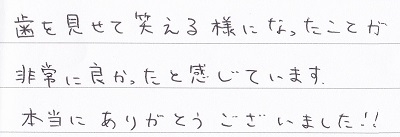 歯を見せて笑える様になったことが
非常に良かったと感じています.
本当にありがとうございました!!